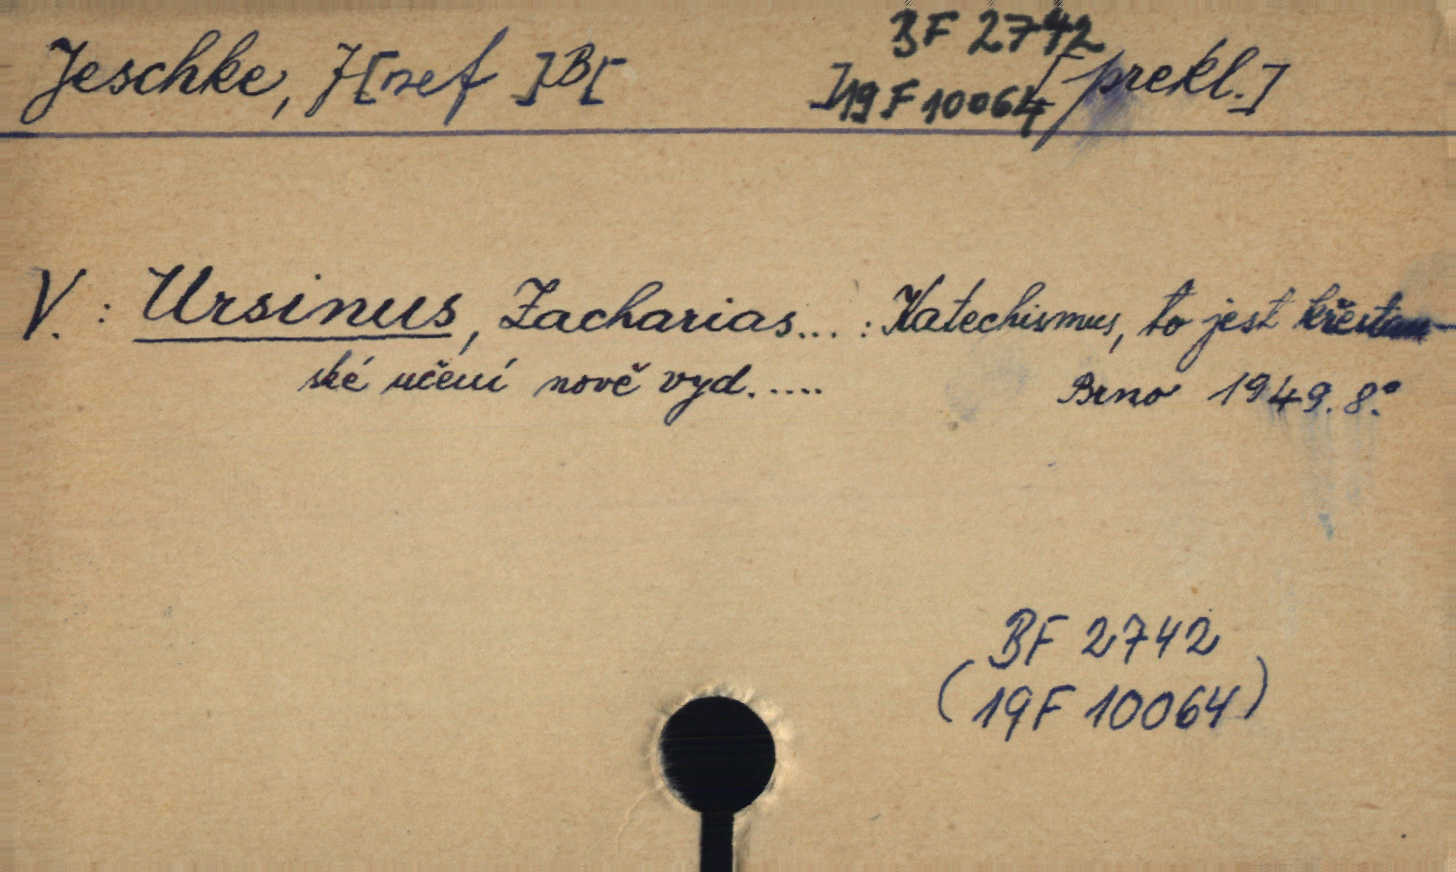 BF 2742
Jeschke, J[osef ]B[ ] [prekl.]
19 F 10064
V. : Ursinus, Zacharias... : Katechismus, to jest křestan-
ské učení nově vyd..... Brno 1949. 8.°
BF 2742
(19 F 10064)